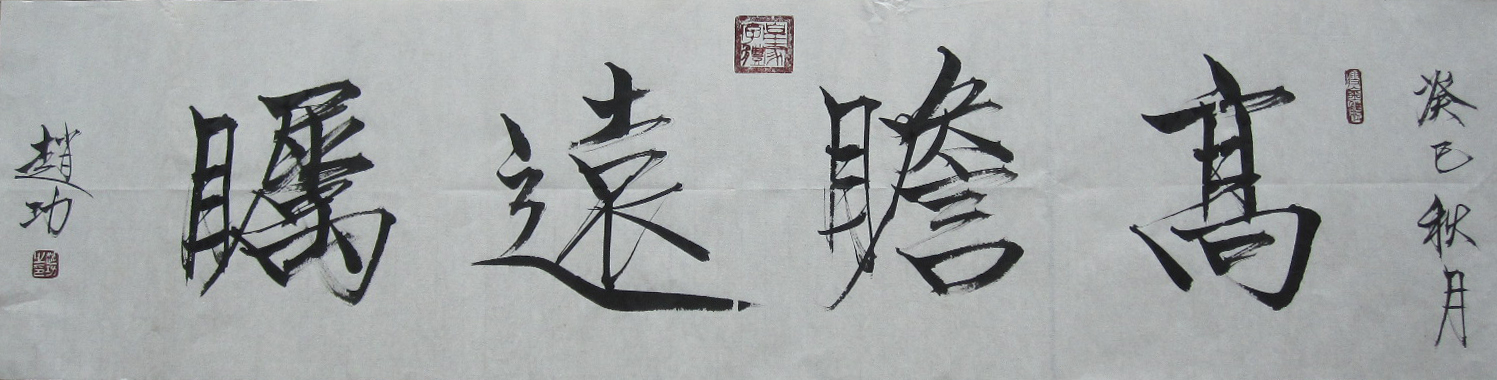 癸巳秋月
髙瞻遠矚
趙功